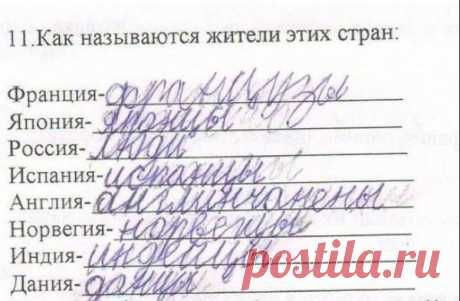 11.Как называются жители этих стран:
Франция- французы
Япония- японцы
Россия- люди
Испания- испанцы
Англия- англинчанены
Норвегия- норвецы
Индия- индейцы
Дания- данцы
postila.ru